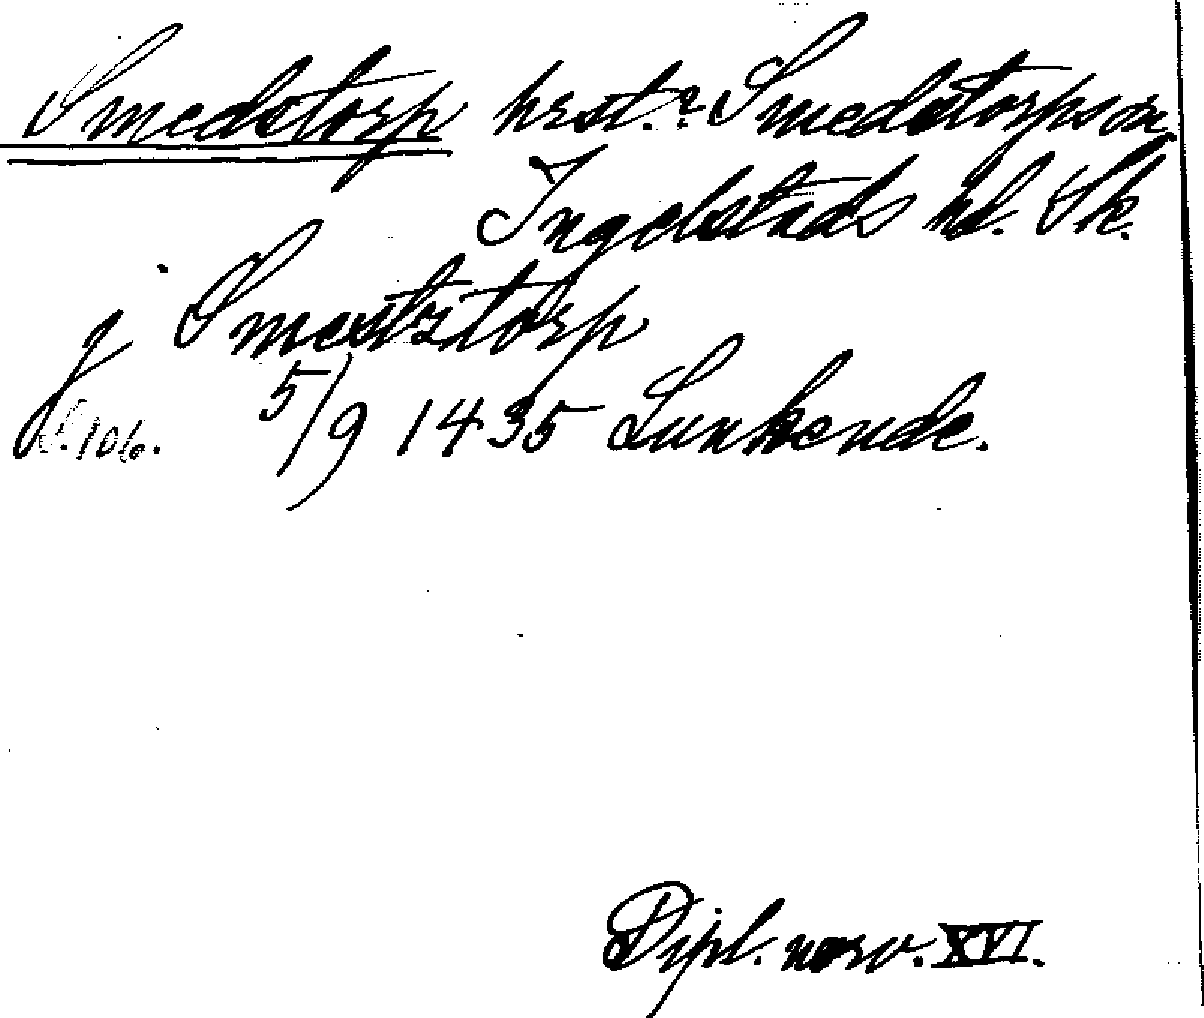 Smedstorp hrst.? Smedstorps sn,
Ingelstads hd. Sk.
j Smestztorp
S. 106. 5/9 1435 Lunkende.
Dipl. norv. XVI.